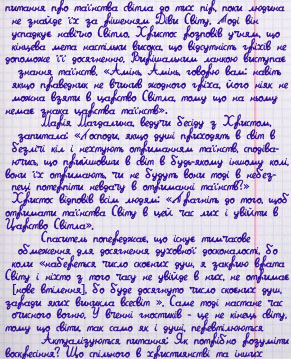 питання про таїнства світла до тих пір, поки людина
не знайде їх за рішенням Діви Світу. Тоді він
успадкує навічно Світло. Христос розповів учням, що
кінцева мета настільки висока, що відсутність гріхів не
допоможе її досягненню. Вирішальним ланкою виступає
знання таїнств. «Амінь, Амінь, говорю вам: навіть
якщо праведник не вчинив жодного гріха, його ніяк не
можна взяти в царство Світла, тому що на ньому
немає знака царства таїнств».
Марія Магдалина, ведучи бесіду з Христом,
запитала: «Господи, якщо душі приходять в світ в
безлічі кіл і нехтують отриманням таїнств, сподіва-
ючись, що прийшовши в світ в будь-якому іншому колі,
вони їх отримають, чи не будуть вони тоді в небез-
пеці потерпіти невдачу в отриманні таїнств?»
Христос відповів всім людям: «Прагніть до того, щоб
отримати таїнства Світу в цей час лих і увійти в
Царство Світла».
Спаситель попереджає, що існує тимчасове
обмеження для досягнення духовної досконалості, бо
коли «набереться число скоєних душ, я закрию врата
Світу і ніхто з того часу не увійде в них, не отримає
[нове втілення], бо буде досягнуто число скоєних душ,
заради яких виникла всесвіт». Саме тоді настане час
очисного вогню. У вченні гностиків - це не кінець світу,
тому що світи, так само як і душі, перевтілюються.
Актуалізуються питання: Як потрібно розуміти
воскресіння? Що спільного в християнстві та інших